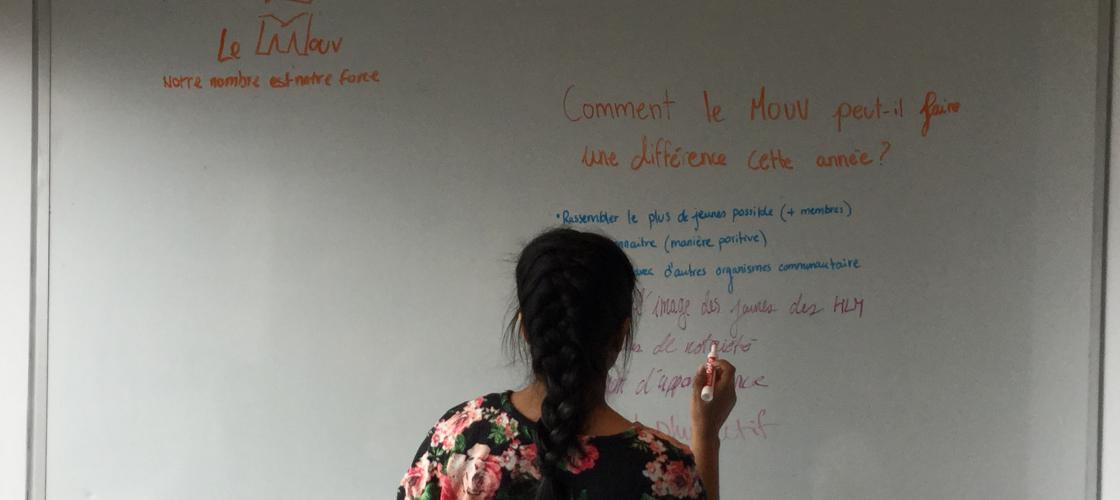 Le Mouv
Notre nombre est notre force
Comment le Mouv peut-il faire
une différence cette année?
• Rassembler le plus de jeunes possible (+ membres)
(manière positive)
d'autres organismes communautaire
d'image des jeunes des HLM
de notoriété